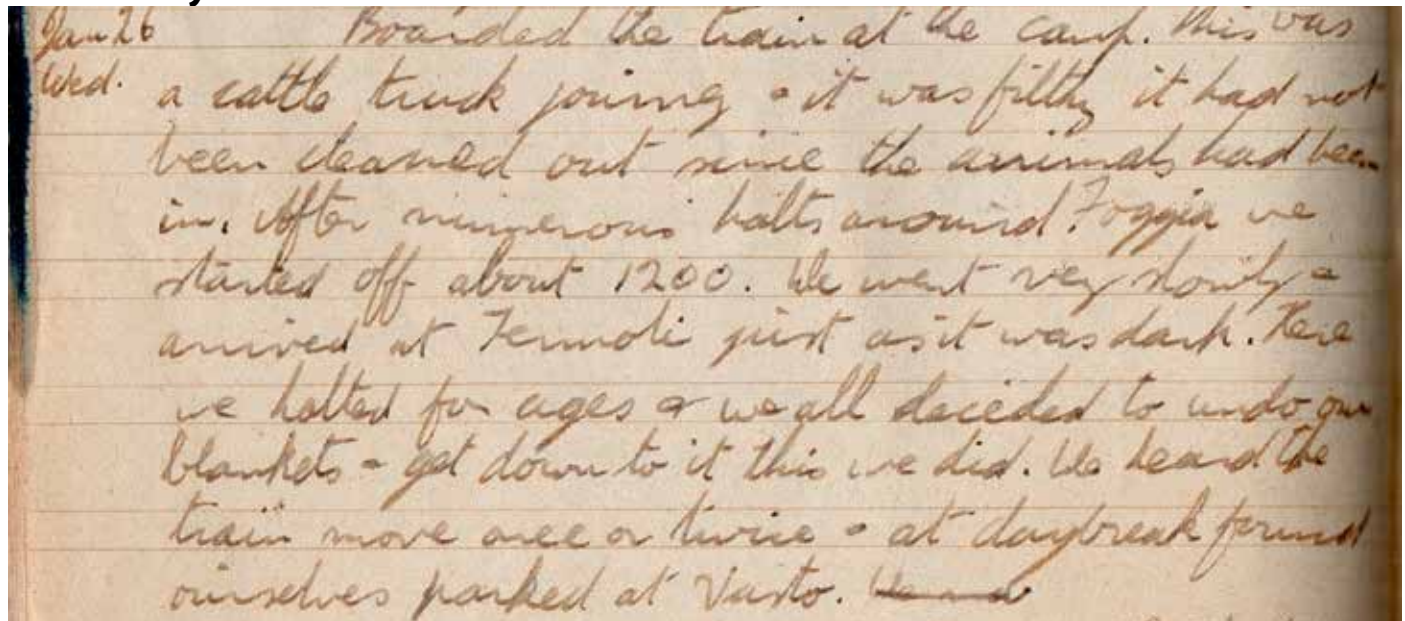 Jan 26 Boarded the train at the camp. This was
Wed. a cattle truck journey & it was filthy it had not
been cleaned out since the animals had been
in. After numerous halts around Foggia we
started off about 1200. We went very slowly &
arrived at Termoli just as it was dark. Here
we halted for ages & we all decided to undo our
blankets & get down to it this we did. We heard the
train move once or twice & at daybreak found
ourselves parked at Vasto.